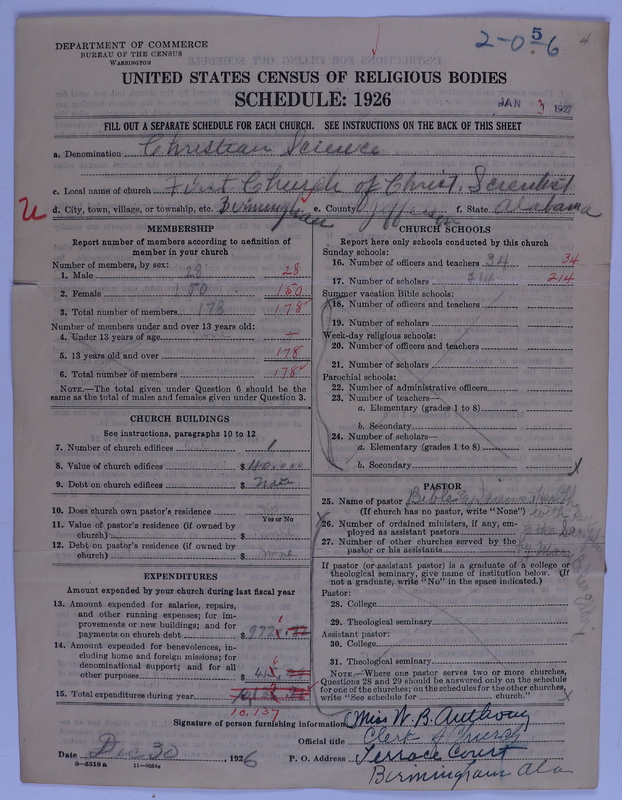 2-0 5-6
4
DEPARTMENT OF COMMERCE
BUREAU OF THE CENSUS
WASHINGTON
UNITED STATES CENSUS OF RELIGIOUS BODIES
SCHEDULE: 1926
JAN 3 1927
FILL OUT A SEPARATE SCHEDULE FOR EACH CHURCH. SEE INSTRUCTIONS ON THE BACK OF THIS SHEET
a. Denomination Christian Science
c. Local name of church First Church of Christ, Scientist
U d. City, town, village, or township, etc. Birmingham e. County Jefferson f. State Alabama
MEMBERSHIP
Report number of members according to definition of
member in your church
Number of members, by sex:
1. Male 28 28
2. Female 150 150
3. Total number of members 178 178
Number of members under and over 13 years old:
4. Under 13 years of age —
5. 13 years old and over 178
6. Total number of members 178
NOTE.—The total given under Question 6 should be the
same as the total of males and females given under Question 3.
CHURCH BUILDINGS
See instructions, paragraphs 10 to 12
7. Number of church edifices 1
8. Value of church edifices $
9. Debt on church edifices $ none
10. Does church own pastor's residence No
Yes or No
11. Value of pastor's residence (if owned by
church) $
12. Debt on pastor's residence (if owned by
church) $ none
EXPENDITURES
Amount expended by your church during last fiscal year
13. Amount expended for salaries, repairs,
and other running expenses; for im-
provements or new buildings; and for
payments on church debt $
14. Amount expended for benevolences, in-
cluding home and foreign missions; for
denominational support; and for all
other purposes $
15. Total expenditures during year
10,137
CHURCH SCHOOLS
Report here only schools conducted by this church
Sunday schools:
16. Number of officers and teachers 34 34
17. Number of scholars 214 214
Summer vacation Bible schools:
18. Number of officers and teachers
19. Number of scholars
Week-day religious schools:
20. Number of officers and teachers
21. Number of scholars
Parochial schools:
22. Number of administrative officers
23. Number of teachers—
a. Elementary (grades 1 to 8)
b. Secondary
24. Number of scholars—
a. Elementary (grades 1 to 8)
b. Secondary
PASTOR
25. Name of pastor Bible & Science & Health
(If church has no pastor, write "None") with Key
26. Number of ordained ministers, if any, em-
ployed as assistant pastors to the
27. Number of other churches served by the
pastor or his assistants
If pastor (or assistant pastor) is a graduate of a college or
theological seminary, give name of institution below. (If
not a graduate, write "No" in the space indicated.)
Pastor:
28. College
29. Theological seminary
Assistant pastor:
30. College
31. Theological seminary
NOTE.—Where one pastor serves two or more churches,
Questions 28 and 29 should be answered only on the schedule
for one of the churches; on the schedules for the other churches,
write "See schedule for church."
Signature of person furnishing information Miss W. B. Anthony
Official title Clerk of Church
Date Dec 30, 1926 P. O. Address Terrace Court
8-5518a 11-9554a Birmingham Ala